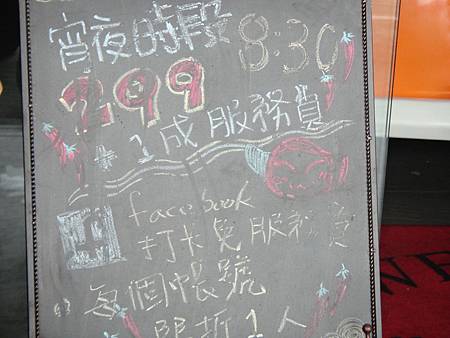 宵夜時段 8:30
299
+1成服務費
facebook
打卡免服務費
每個帳號
限折1人